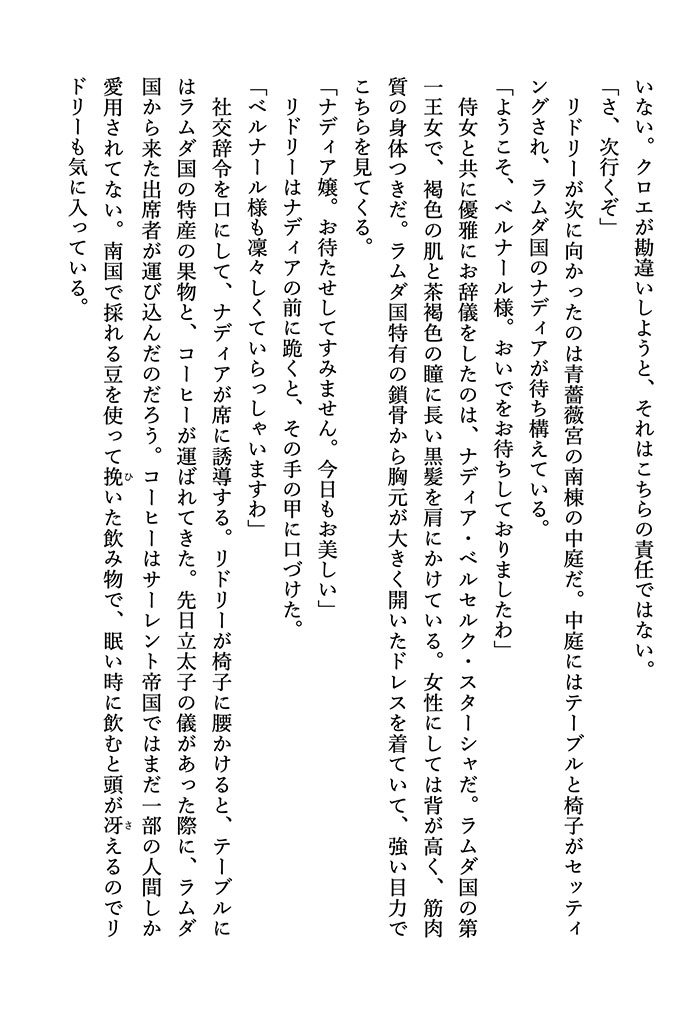 いない。クロエが勘違いしようと、それはこちらの責任ではない。
「さ、次行くぞ」
　リドリーが次に向かったのは青薔薇宮の南棟の中庭だ。中庭にはテーブルと椅子がセッティ
ングされ、ラムダ国のナディアが待ち構えている。
「ようこそ、ベルナール様。おいでをお待ちしておりましたわ」
　侍女と共に優雅にお辞儀をしたのは、ナディア・ベルセルク・スターシャだ。ラムダ国の第
一王女で、褐色の肌と茶褐色の瞳に長い黒髪を肩にかけている。女性にしては背が高く、筋肉
質の身体つきだ。ラムダ国特有の鎖骨から胸元が大きく開いたドレスを着ていて、強い目力で
こちらを見てくる。
「ナディア嬢。お待たせしてすみません。今日もお美しい」
　リドリーはナディアの前に跪くと、その手の甲に口づけた。
「ベルナール様も凜々しくていらっしゃいますわ」
　社交辞令を口にして、ナディアが席に誘導する。リドリーが椅子に腰かけると、テーブルに
はラムダ国の特産の果物と、コーヒーが運ばれてきた。先日立太子の儀があった際に、ラムダ
国から来た出席者が運び込んだのだろう。コーヒーはサーレント帝国ではまだ一部の人間しか
愛用されてない。南国で採れる豆を使って挽ひいた飲み物で、眠い時に飲むと頭が冴さえるのでリ
ドリーも気に入っている。